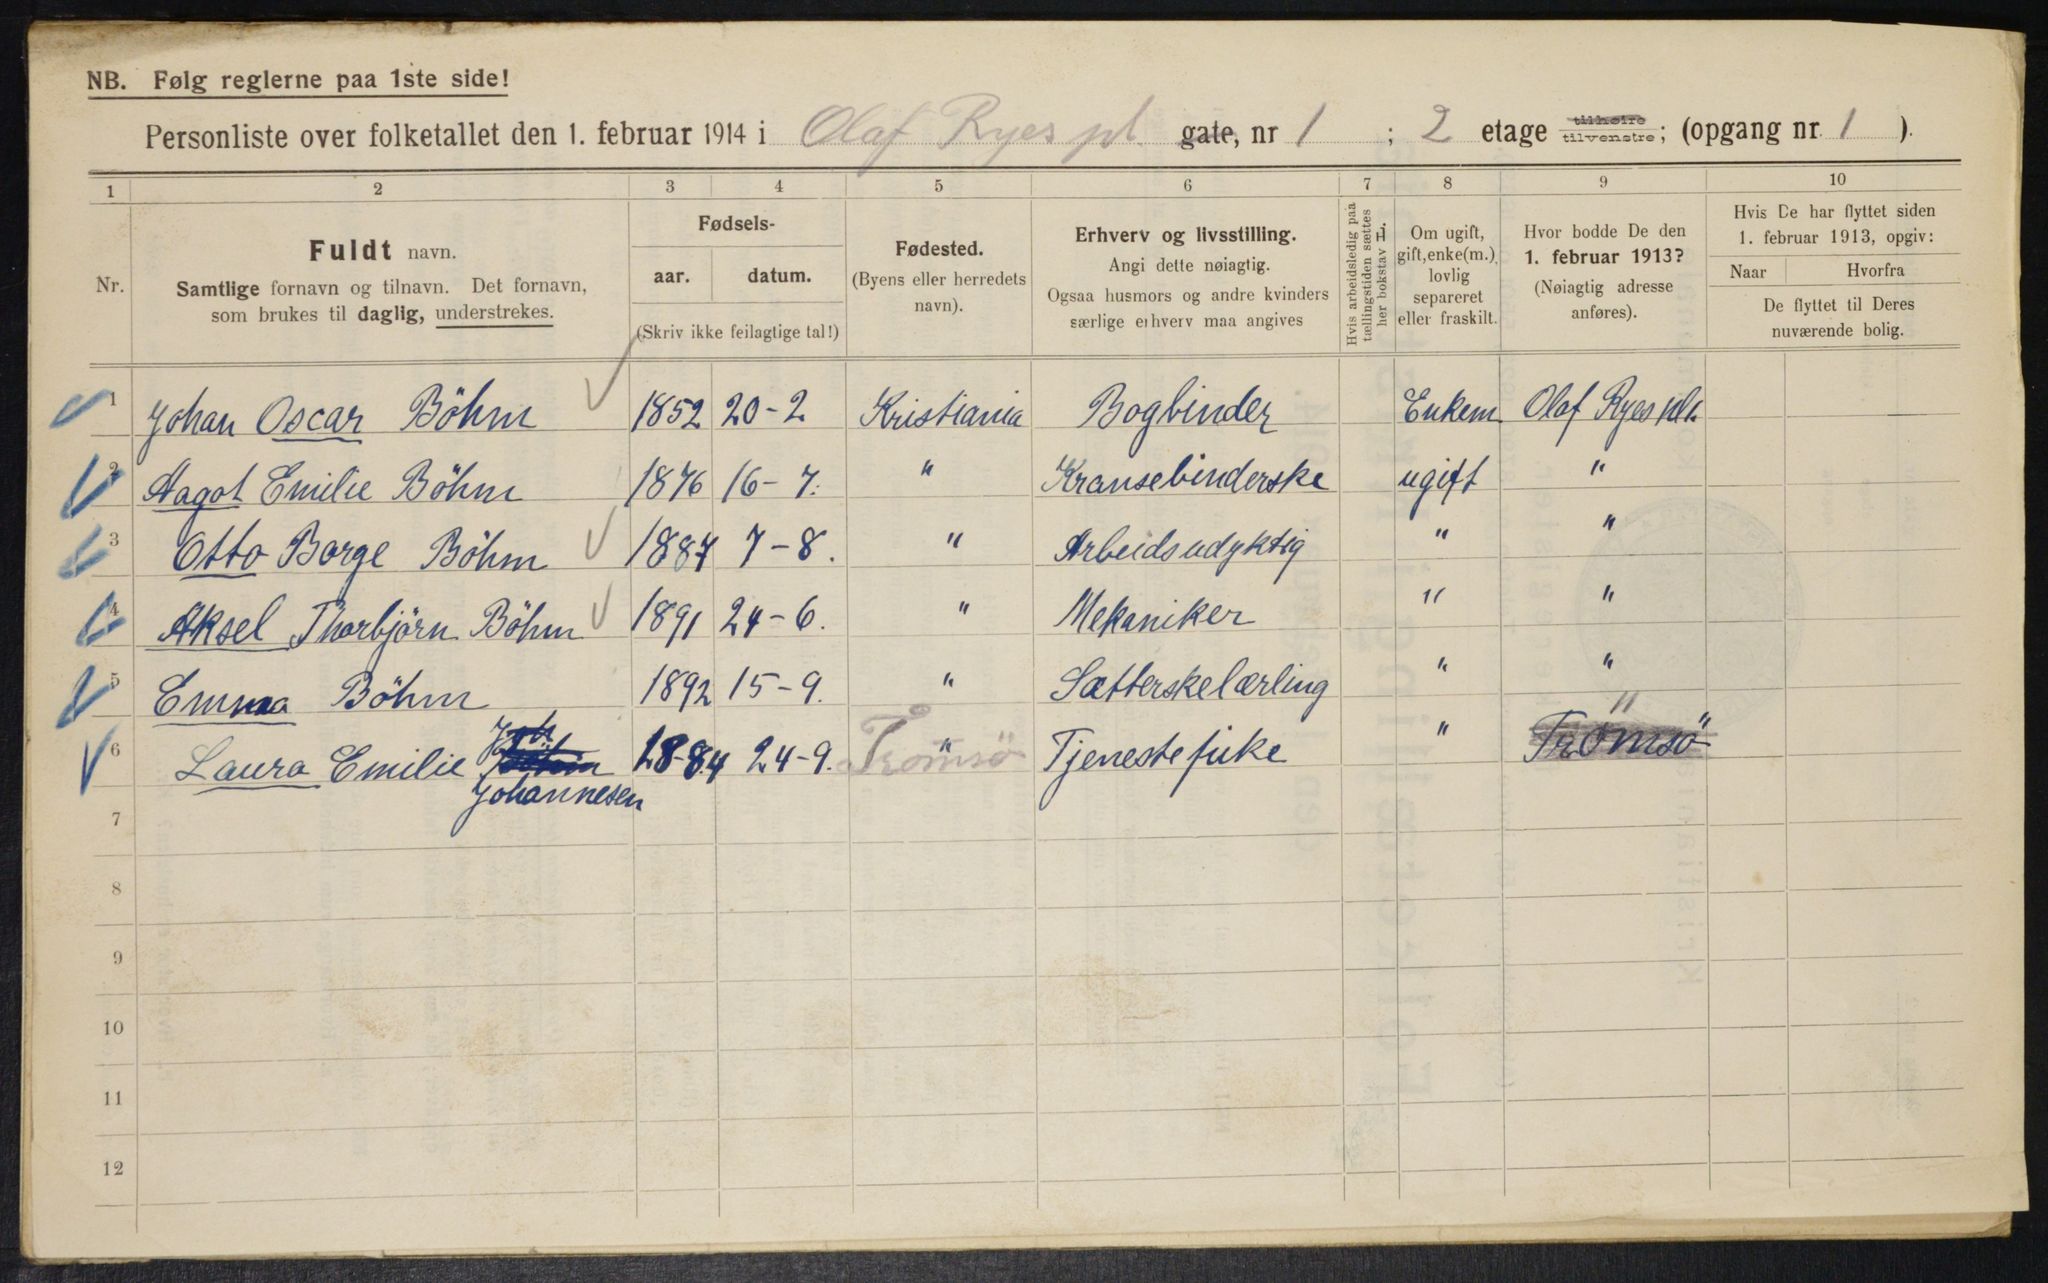 NB. Følg reglerne paa 1ste side!
Personliste over folketallet den 1. februar 1914 i Olaf Ryes pl. gate, nr 1 ; 2 etage tilhøire tilvenstre; (opgang nr. 1 ).
1 2 3 4 5 6 7 8 9 10
Nr.
Fuldt navn.
Samtlige fornavn og tilnavn. Det fornavn,
som brukes til daglig, understrekes.
Fødsels-
aar. datum.
(Skriv ikke feilagtige tal!)
Fødested.
(Byens eller herredets
navn).
Erhverv og livsstilling.
Angi dette nøiagtig.
Ogsaa husmors og andre kvinders
særlige erhverv maa angives
Hvis arbeidsledig paa
tællingstiden sættes
her bokstav L.
Om ugift,
gift, enke(m.),
lovlig
separeret
eller fraskilt.
Hvor bodde De den
1. februar 1913?
(Nøiagtig adresse
anføres).
Hvis De har flyttet siden
1. februar 1913, opgiv:
Naar Hvorfra
De flyttet til Deres
nuværende bolig.
1 Johan Oscar Böhm 1852 20-2 Kristiania Bogbinder Enkem Olaf Ryes pl.
2 Aagot Emilie Böhm 1876 16-7. " Kransebinderske ugift "
3 Otto Borge Böhm 1887 7-8. " Arbeidsudyktig " "
4 Aksel Thorbjörn Böhm 1891 24-6. " Mekaniker " "
5 Emma Böhm 1892 15-9. " Sætterskelærling " "
6 Laura Emilie Johannesen 1884 24-9. " Tromsø Tjenestepike " Tromsö "
7
8
9
10
11
12